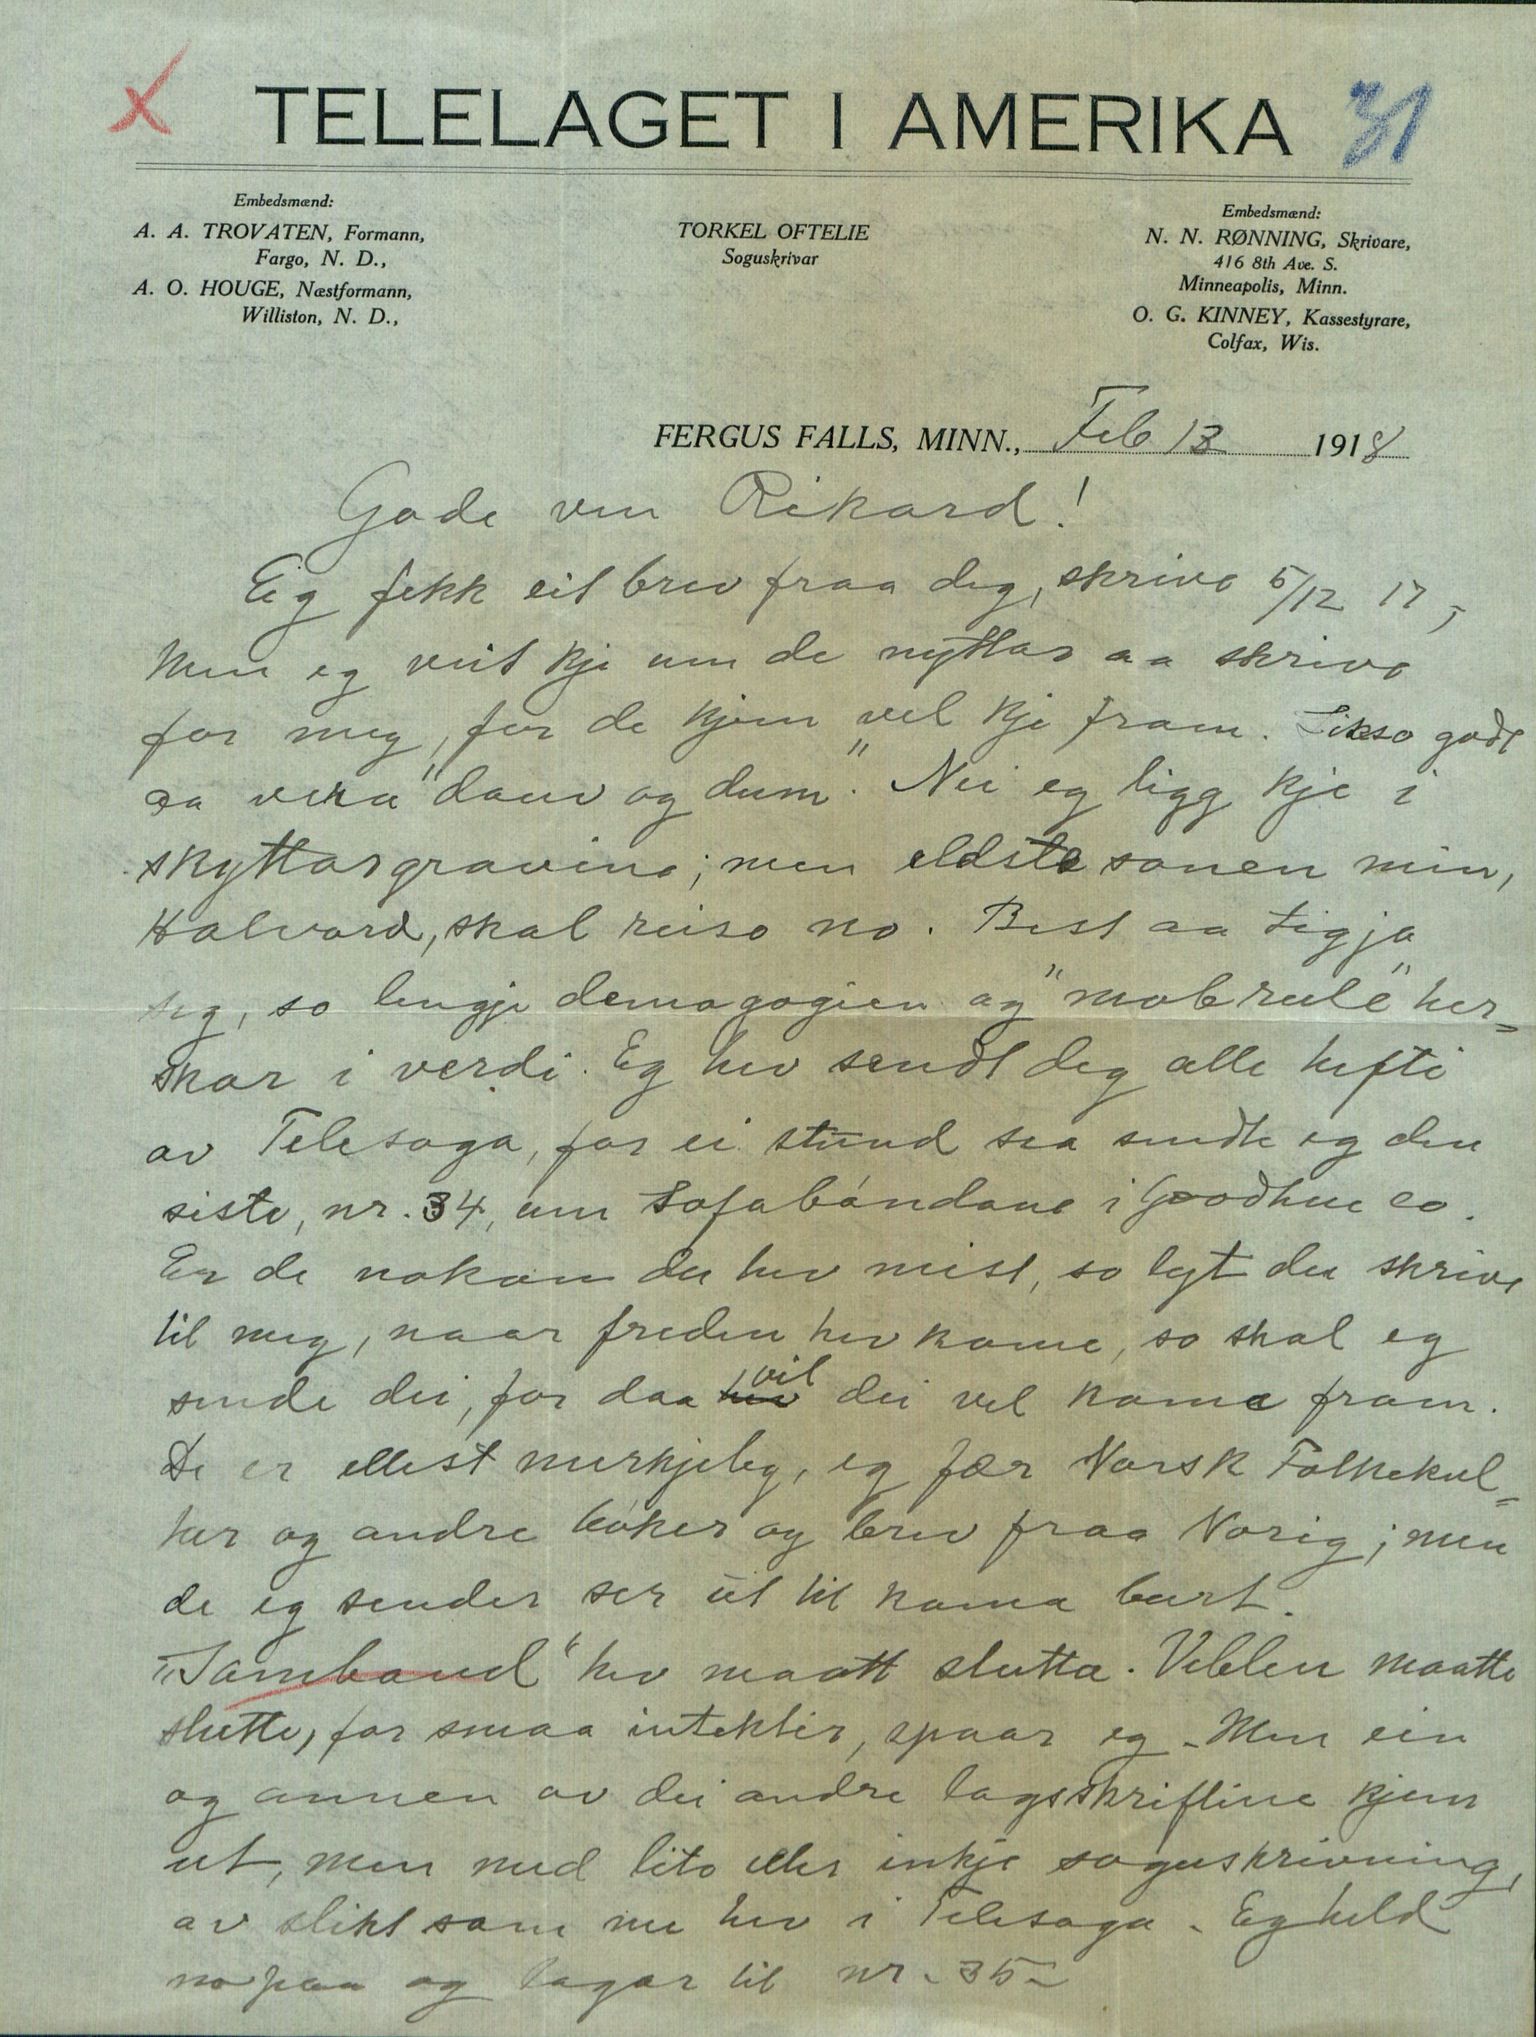 X
TELELAGET I AMERIKA
31
Embedsmænd:
A. A. TROVATEN, Formann,
Fargo, N. D.,
A. O. HOUGE, Næstformann,
Williston, N. D.,
TORKEL OFTELIE
Soguskrivar
Embedsmænd:
N. N. RØNNING, Skrivare,
416 8th Ave. S.
Minneapolis, Minn.
O. G. KINNEY, Kassestyrare,
Colfax, Wis.
FERGUS FALLS, MINN., Feb 13 1918
Gode ven Rikard!
Eig fekk eit brev fraa deg, skrive 5/12 17,
men eg veit kje um de nyttar aa skrive
for meg, for de kjem vel kje fram. Likso godt
aa vera "dauv og dum". Nei eg ligg kje i
skyttargravine; men eldste sonen min,
Halvard, skal reise no. Best aa tigja
seg, so lengje demagogien og "mobrule" her-
skar i verdi. Eg hev sendt deg alle hefti
av Telesoga, for ei stund sea sendte eg den
siste, nr. 34, um Sofabóndane i Goodhue co.
Er de nokon du hev mist, so lyt du skrive
til meg, naar freden hev kome, so skal eg
sende dei, for daa hev vil dei vel koma fram.
De er ellest merkjeleg, eg fær Norsk Folkekul-
tur og andre bóker og brev fraa Norig; men
de eg sender ser ut til koma burt.
"Samband" hev maatt slutta. Veblen maatte
slutte, for smaa intekter, spaar eg. Men ein
og annen av dei andre lagsskriftine kjem
ut, men med lite eller inkje soguskrivning,
av slikt som me hev i Telesoga. Eg held
no paa og lagar til nr. 35.